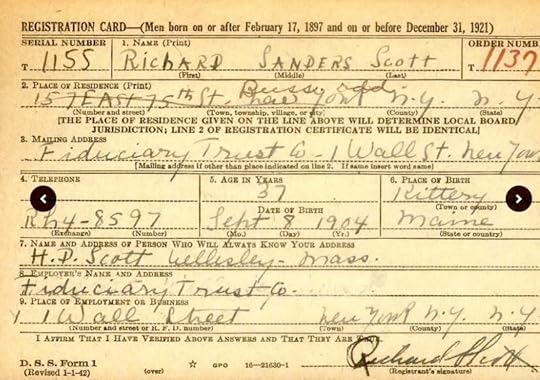 REGISTRATION CARD—(Men born on or after February 17, 1897 and on or before December 31, 1921)
SERIAL NUMBER 1. NAME (Print) ORDER NUMB
T 1155 Richard Sanders Scott T 1137
(First) (Middle) (Last)
2. PLACE OF RESIDENCE (Print)
15 East 75th St. New York N.Y. N.Y.
(Number and street) (Town, township, village, or city) (County) (State)
[THE PLACE OF RESIDENCE GIVEN ON THE LINE ABOVE WILL DETERMINE LOCAL BOARD
JURISDICTION; LINE 2 OF REGISTRATION CERTIFICATE WILL BE IDENTICAL]
3. MAILING ADDRESS
Fiduciary Trust Co 1 Wall St. New York
[Mailing address if other than place indicated on line 2. If same insert word same]
4. TELEPHONE 5. AGE IN YEARS 6. PLACE OF BIRTH
37 Kittery
DATE OF BIRTH (Town or county)
Rh4-8597 Sept 8 1904 Maine
(Exchange) (Number) (Mo.) (Day) (Yr.) (State or country)
7. NAME AND ADDRESS OF PERSON WHO WILL ALWAYS KNOW YOUR ADDRESS
H.D. Scott Wellesley - Mass.
8. EMPLOYER'S NAME AND ADDRESS
Fiduciary Trust Co.
9. PLACE OF EMPLOYMENT OR BUSINESS
1 Wall Street New York N.Y. N.Y.
(Number and street or R. F. D. number) (Town) (County) (State)
I AFFIRM THAT I HAVE VERIFIED ABOVE ANSWERS AND THAT THEY ARE TRUE.
Richard S Scott
D. S. S. Form 1
(Revised 1-1-42) (over) ☆ GPO 16—21630-1 (Registrant's signature)